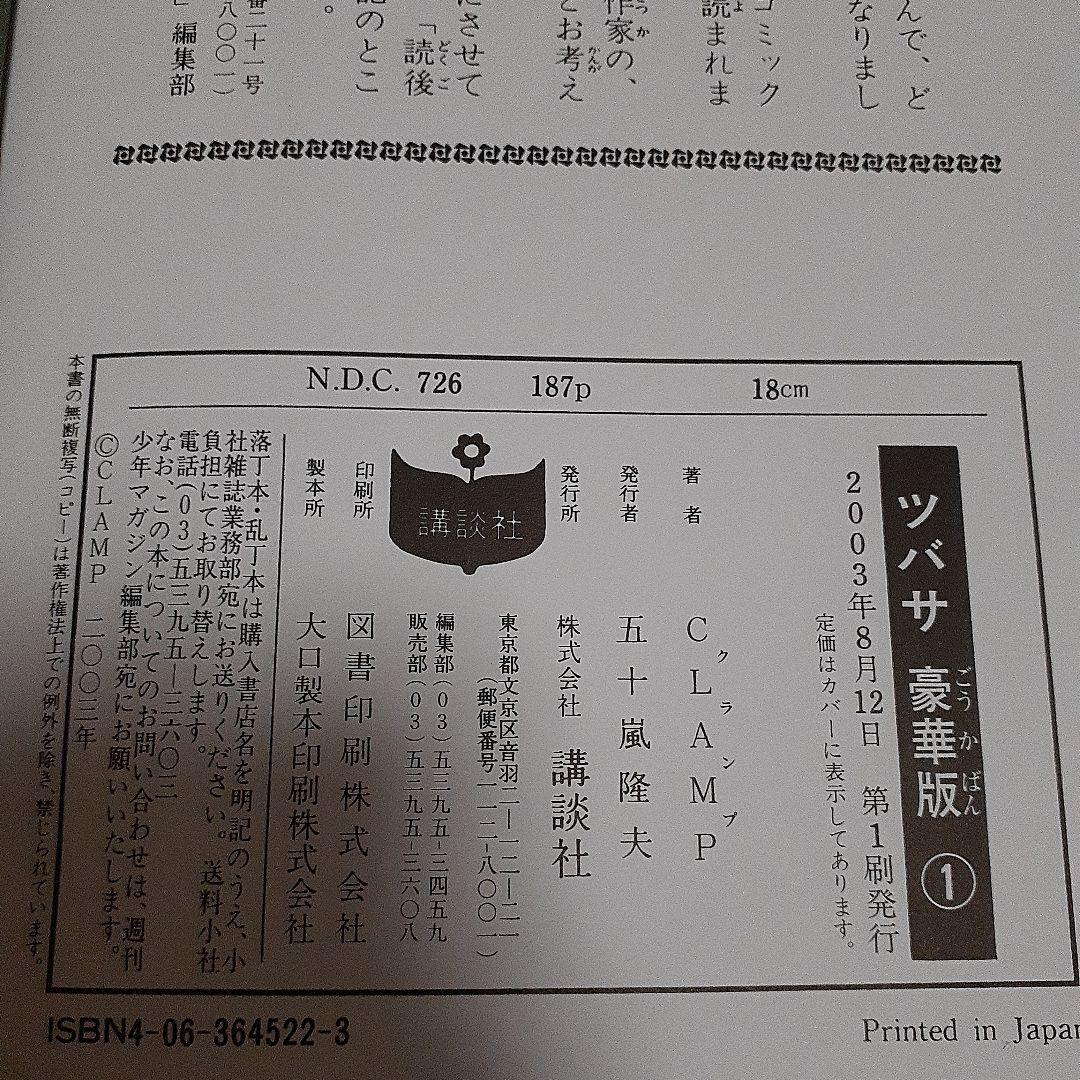 んで、ど
なりまし
コミック
読まれま
よ
作家の、
っか
とお考え
かんが
にさせて
「読後
どくご
記のとこ
。
番二十一号
八〇〇一)
」編集部
N.D.C. 726 187p 18cm
ツバサ 豪華版 ①
ごうかばん
2003年8月12日 第1刷発行
定価はカバーに表示してあります。
著者 CLAMP
クランプ
発行者 五十嵐隆夫
発行所 株式会社 講談社
東京都文京区音羽二―一二―二一
(郵便番号一一二―八〇〇一)
編集部(03)五三九五―三四五九
販売部(03)五三九五―三六〇八
講談社
印刷所 図書印刷株式会社
製本所 大口製本印刷株式会社
落丁本・乱丁本は購入書店名を明記のうえ、小
社雑誌業務部宛にお送りください。送料小社
負担にてお取り替えします。
電話(03)五三九五―三六〇三
なお、この本についてのお問い合わせは、週刊
少年マガジン編集部宛にお願いいたします。
©CLAMP 二〇〇三年
本書の無断複写(コピー)は著作権法上での例外を除き、禁じられています。
ISBN4-06-364522-3
Printed in Japan